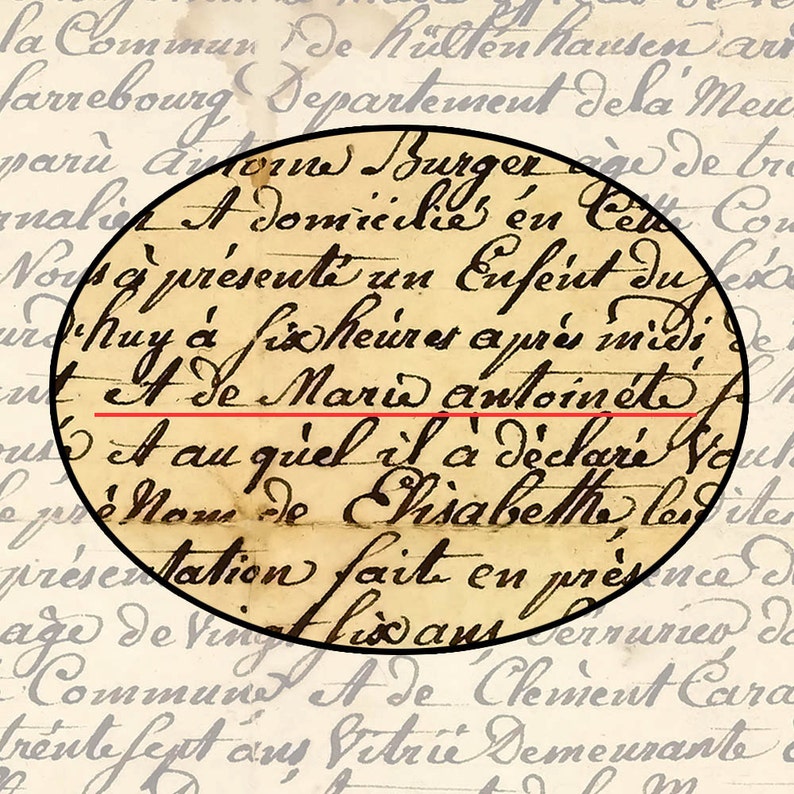 la Commune de hültenhausen arr
farrebourg Departement delá Meu
parù antoine Burger âge de tré
rnalier A domicilié én Cette Com
Nous à présenté un Enfént du séxe
urd'huy á six heúres après midi d
t A de Marie antoinété
ousé A auquèl il à déclaré Voul
le pré Nom de Elisabeth lesdites
présentation fait en présence d
age de Vingt six ans Sérrurier d
Commune A de Clement Cara
trénte sept ans Vitrié Demeurante à